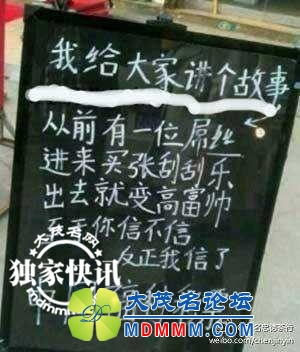 我给大家讲个故事
从前有一位屌丝
进来买张刮刮乐
出去就变高富帅
你信不信
反正我信了
大茂名网
独家快讯
大茂名论坛
MDMMM.COM
weibo.com/chenjinyin